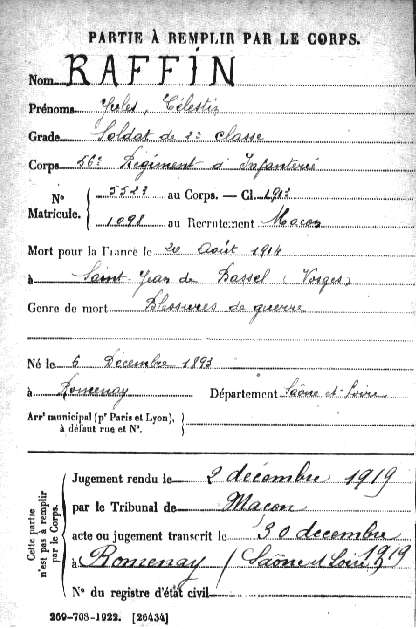 PARTIE À REMPLIR PAR LE CORPS.
Nom RAFFIN
Prénoms Jules, Célestin
Grade Soldat de 2e classe
Corps 56e Régiment d'Infanterie
N° Matricule. 5523 au Corps. — Cl. 1913
1098 au Recrutement Macon
Mort pour la France le 20 Août 1914
à Saint-Jean de Bassel (Vosges)
Genre de mort Blessures de guerre
Né le 6 Decembre 1893
à Romenay Département Saône et Loire
Arrt municipal (pr Paris et Lyon),
à défaut rue et N°.
Cette partie n'est pas à remplir par le Corps.
Jugement rendu le 2 décembre 1919
par le Tribunal de Macon
acte ou jugement transcrit le 30 decembre 1919
à Romenay (Saône et Loire)
N° du registre d'état civil
269-708-1922. [26434]